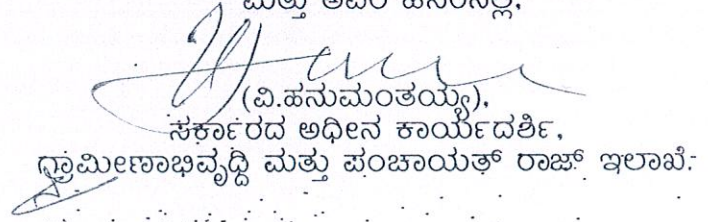 ಮತ್ತು ಅವರ ಹೆಸರಿನಲ್ಲಿ,
(ವಿ.ಹನುಮಂತಯ್ಯ),
ಸರ್ಕಾರದ ಅಧೀನ ಕಾರ್ಯದರ್ಶಿ,
ಗ್ರಾಮೀಣಾಭಿವೃದ್ಧಿ ಮತ್ತು ಪಂಚಾಯತ್ ರಾಜ್ ಇಲಾಖೆ.